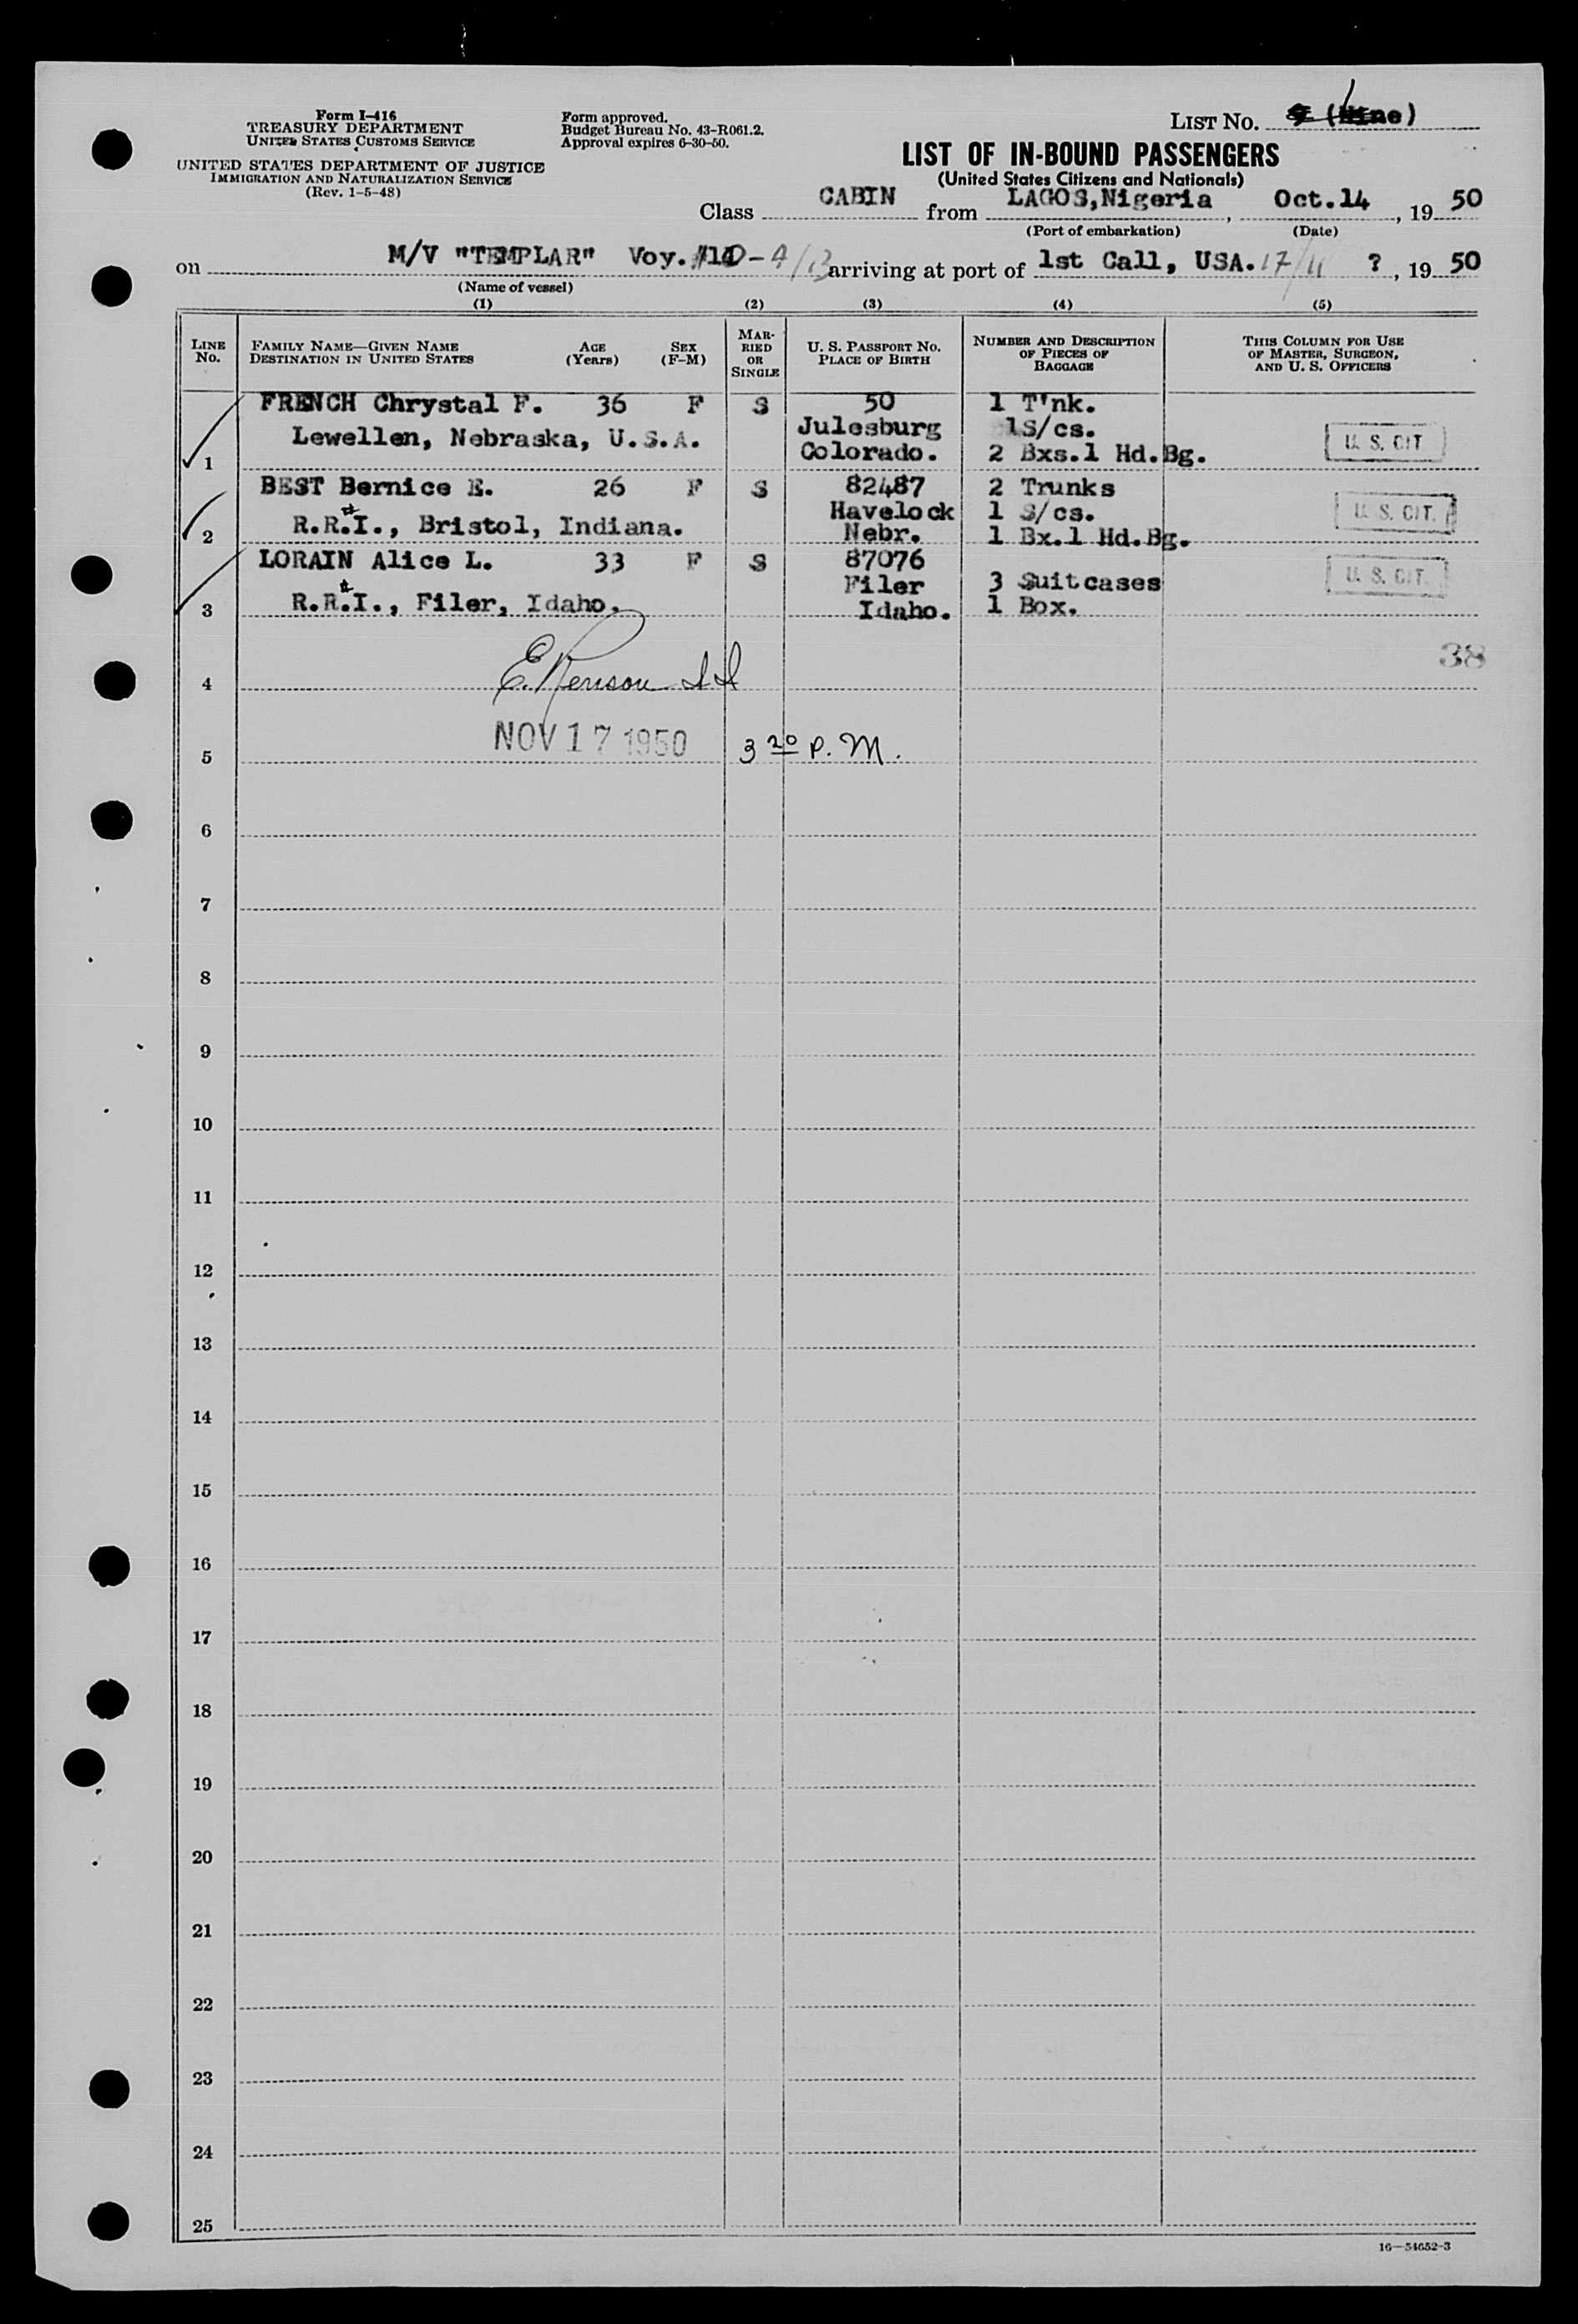 Form I-416
TREASURY DEPARTMENT
UNITED STATES CUSTOMS SERVICE
UNITED STATES DEPARTMENT OF JUSTICE
IMMIGRATION AND NATURALIZATION SERVICE
(Rev. 1-5-48)
Form approved.
Budget Bureau No. 43-R061.2.
Approval expires 6-30-50.
LIST No. 9 (Nine)
LIST OF IN-BOUND PASSENGERS
(United States Citizens and Nationals)
Class CABIN from LAGOS, Nigeria, Oct. 14, 19 50
(Port of embarkation) (Date)
on M/V "TEMPLAR" Voy. #10-4/13 arriving at port of 1st Call, USA. 17/11 ?, 19 50
(Name of vessel)
(1) (2) (3) (4) (5)
LINE No. FAMILY NAME—GIVEN NAME DESTINATION IN UNITED STATES AGE (Years) SEX (F-M) MARRIED OR SINGLE U. S. PASSPORT NO. PLACE OF BIRTH NUMBER AND DESCRIPTION OF PIECES OF BAGGAGE THIS COLUMN FOR USE OF MASTER, SURGEON, AND U. S. OFFICERS
FRENCH Chrystal F. 36 F S 50 1 T'nk.
Lewellen, Nebraska, U.S.A. Julesburg 1S/cs.
1 Colorado. 2 Bxs.1 Hd.Bg. U. S. CIT
BEST Bernice E. 26 F S 82487 2 Trunks
R.R.#I., Bristol, Indiana. Havelock 1 S/cs. U. S. CIT.
2 Nebr. 1 Bx.1 Hd.Bg.
LORAIN Alice L. 33 F S 87076
Filer 3 Suitcases U. S. CIT.
3 R.R.#I., Filer, Idaho. Idaho. 1 Box.
38
4 E. Renison
NOV 17 1950 3 20 P.M.
5
6
7
8
9
10
11
12
13
14
15
16
17
18
19
20
21
22
23
24
25
16—54652-3